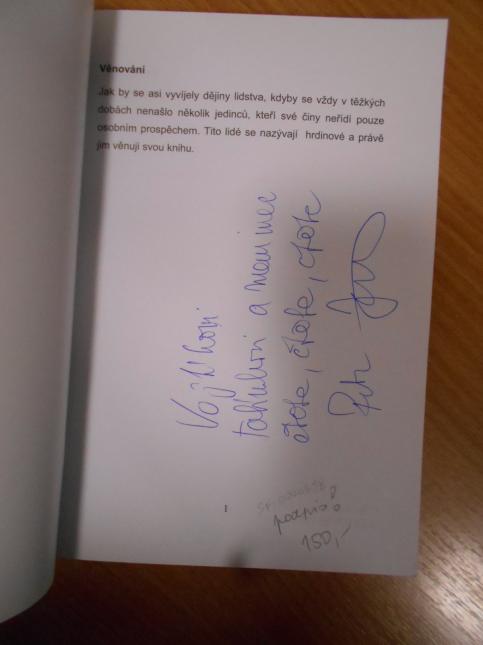 Věnování
Jak by se asi vyvíjely dějiny lidstva, kdyby se vždy v těžkých
dobách nenašlo několik jedinců, kteří své činy neřídí pouze
osobním prospěchem. Tito lidé se nazývají hrdinové a právě
jim věnuji svou knihu.
tatínkovi a mamince
čtěte, čtěte, čtěte
Petr
1
podpis!
150,-